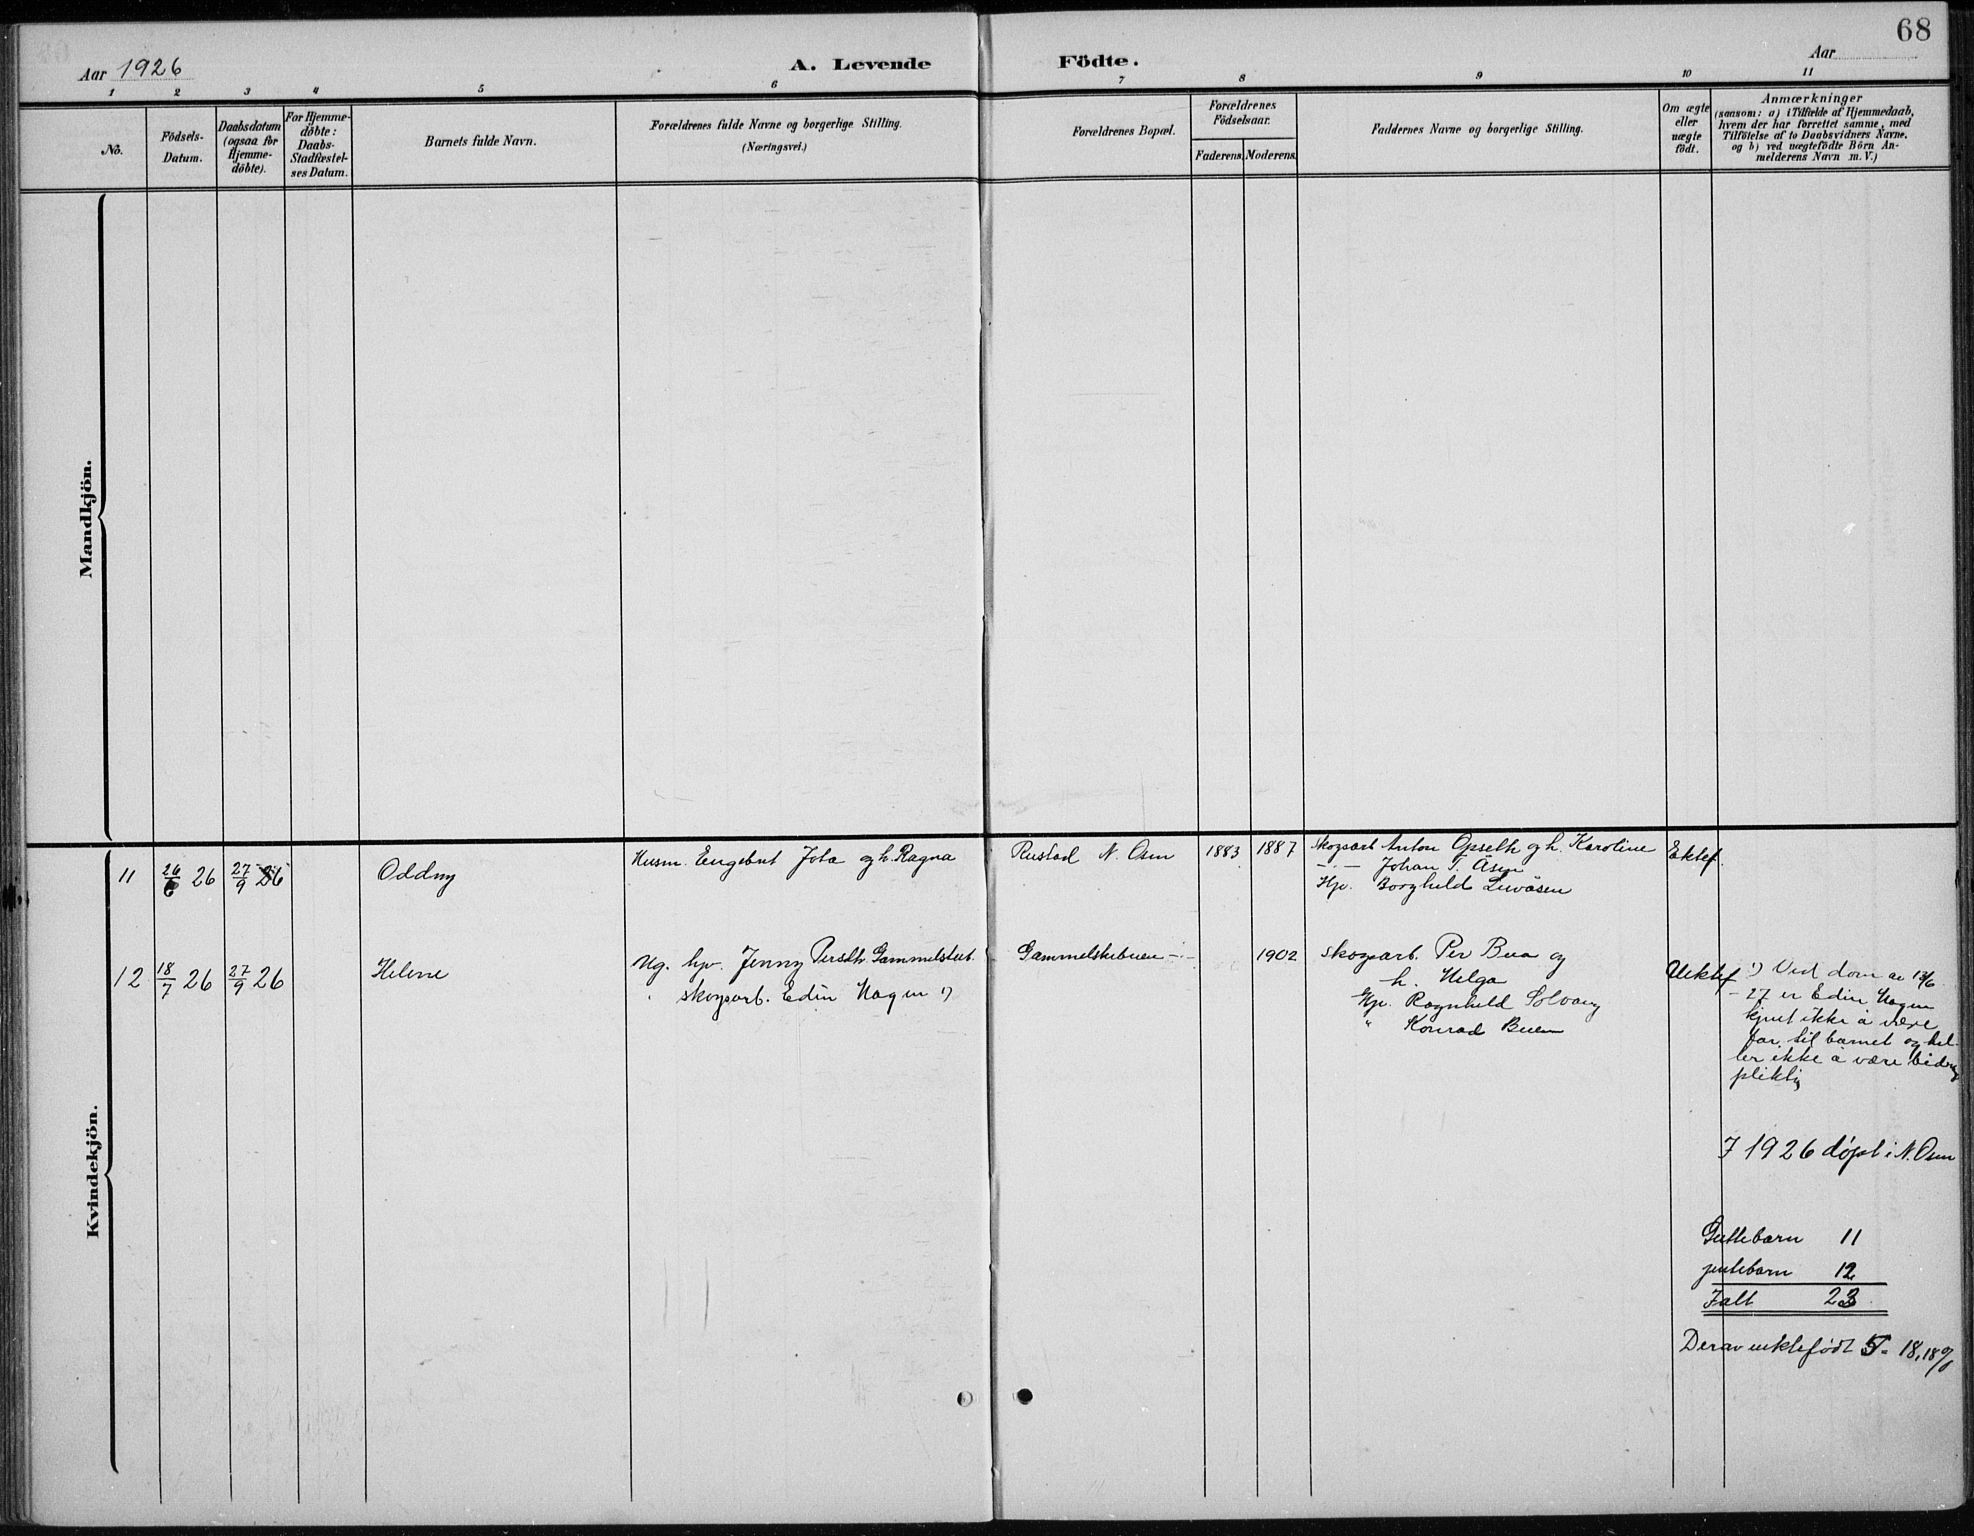 68
Aar 1926
A. Levende Födte.
Aar
1 2 3 4 5 6 7 8 9 10 11
No.
Födsels-
Datum.
Daabsdatum
(ogsaa for
Hjemme-
döbte).
For Hjemme-
döbte:
Daabs-
Stadfæstel-
ses Datum.
Barnets fulde Navn.
Forældrenes fulde Navne og borgerlige Stilling.
(Næringsvei.)
Forældrenes Bopæl.
Forældrenes
Födselsaar.
Faderens. Moderens.
Faddernes Navne og borgerlige Stilling.
Om ægte
eller
uægte
födt.
Anmærkninger
(saasom: a) i Tilfælde af Hjemmedaab,
hvem der har forrettet samme, med
Tilföielse af to Daabsvidners Navne,
og b) ved uægtefödte Börn An-
melderens Navn m. V.)
Mandkjön.
Kvindekjön.
11 26/6 26 27/9 26 Oddny
Husm. Engebret Jota og h. Ragna
Rustad N. Osen 1883 1887
Skogsarb Anton Opseth og h. Karoline
–"– Johan T. Åsen
Hp. Borghild Åsen
Ektef.
12 18/7 26 27/9 26 Helene
Ug. hp. Jenny Gammelstu
skogsarb. Edin Hagen 1)
Gammelstubuen –"– 1902
skogsarb. Per Bua og
h. Helga
Hp. Ragnhild Solvang
" Konrad Buen
Uektef
1) Ved dom av 13/6
– 27 er Edin Hagen
kjent ikke å være
far til barnet og hel-
ler ikke å være bidrag
pliktig
I 1926 döpt i N. Osen
Guttebarn 11
jentebarn 12
Ialt 23
Derav uektefödt 5 = 18,18 %